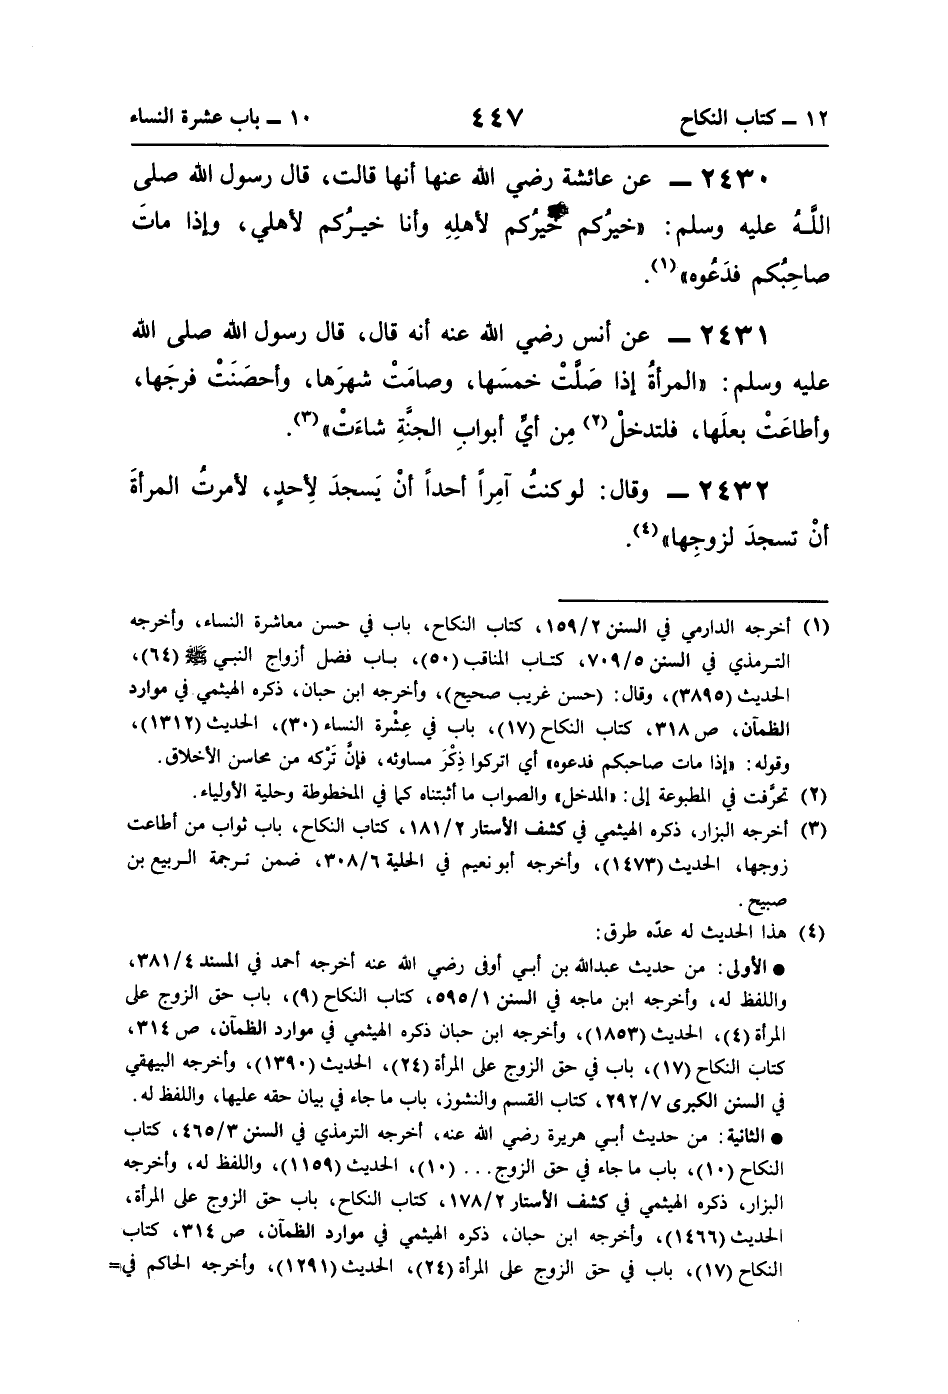 ١٢ ـ كتاب النكاح ٤٤٧ ١٠ ـ باب عشرة النساء
٢٤٣٠ ـ عن عائشة رضي الله عنها أنها قالت، قال رسول الله صلى
اللَّهُ عليه وسلم: «خيرُكم خيرُكم لأهلِهِ وأنا خيـرُكم لأهلي، وإذا ماتَ
صاحِبُكم فدَعُوه»(١).
٢٤٣١ ـ عن أنس رضي الله عنه أنه قال، قال رسول الله صلى الله
عليه وسلم: «المرأةُ إذا صَلَّتْ خمسَها، وصامَتْ شهرَها، وأحصَنَتْ فرجَها،
وأطاعَتْ بعلَها، فلتدخلْ(٢) مِن أيِّ أبوابِ الجنَّةِ شاءَتْ»(٣).
٢٤٣٢ ـ وقال: لو كنتُ آمِراً أحداً أنْ يَسجدَ لِأحدٍ، لأمرتُ المرأةَ
أنْ تسجدَ لزوجِها»(٤).
(١) أخرجه الدارمي في السنن ١٥٩/٢، كتاب النكاح، باب في حسن معاشرة النساء، وأخرجه
التـرمذي في السنن ٧٠٩/٥، كتـاب المناقب (٥٠)، بـاب فضل أزواج النبـي ﷺ (٦٤)،
الحديث (٣٨٩٥)، وقال: (حسن غريب صحيح)، وأخرجه ابن حبان، ذكره الهيثمي في موارد
الظمآن، ص ٣١٨، كتاب النكاح (١٧)، باب في عِشْرة النساء (٣٠)، الحديث (١٣١٢)،
وقوله: «إذا مات صاحبكم فدعوه» أي اتركوا ذِكْرَ مساوئه، فإنَّ تَرْكه من محاسن الأخلاق.
(٢) تحرَّفت في المطبوعة إلى: «المدخل» والصواب ما أثبتناه كما في المخطوطة وحلية الأولياء.
(٣) أخرجه البزار، ذكره الهيثمي في كشف الأستار ١٨١/٢، كتاب النكاح، باب ثواب من أطاعت
زوجها، الحديث (١٤٧٣)، وأخرجه أبو نعيم في الحلية ٣٠٨/٦، ضمن ترجمة الربيع بن
صبيح.
(٤) هذا الحديث له عدّه طرق:
● الأولى: من حديث عبدالله بن أبـي أوفى رضي الله عنه أخرجه أحمد في المسند ٣٨١/٤،
واللفظ له، وأخرجه ابن ماجه في السنن ٥٩٥/١، كتاب النكاح (٩)، باب حق الزوج على
المرأة (٤)، الحديث (١٨٥٣)، وأخرجه ابن حبان ذكره الهيثمي في موارد الظمآن، ص ٣١٤،
كتاب النكاح (١٧)، باب في حق الزوج على المرأة (٢٤)، الحديث (١٣٩٠)، وأخرجه البيهقي
في السنن الكبرى ٢٩٢/٧، كتاب القسم والنشوز، باب ما جاء في بيان حقه عليها، واللفظ له.
● الثانية: من حديث أبـي هريرة رضي الله عنه، أخرجه الترمذي في السنن ٤٦٥/٣، كتاب
النكاح (١٠)، باب ما جاء في حق الزوج... (١٠)، الحديث (١١٥٩)، واللفظ له، وأخرجه
البزار، ذكره الهيثمي في كشف الأستار ١٧٨/٢، كتاب النكاح، باب حق الزوج على المرأة،
الحديث (١٤٦٦)، وأخرجه ابن حبان، ذكره الهيثمي في موارد الظمآن، ص ٣١٤، كتاب
النكاح (١٧)، باب في حق الزوج على المرأة (٢٤)، الحديث (١٢٩١)، وأخرجه الحاكم في=